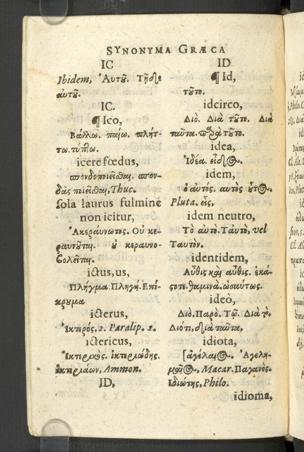 SYNONYMA GRÆCA
IC
Ibidem, Αυτοῦ. Τῇδε
αὐτοῦ.
IC.
¶ Ico,
Βάλλω. παίω. πλήτ-
τω. τύπτω.
icere fœdus,
σπενδοποιεῖσθαι. σπον-
δὰς ποιεῖσθαι, Thuc.
sola laurus fulmine
non icitur,
Ἀκεραύνωτος. Οὐ κε-
ραυνοῦται. ὁ κεραυνο-
βολεῖται.
ictus, us,
Πλῆγμα. Πληγή. Ἐπί-
κρουμα
icterus,
Ἴκτερος, 2. Paralip. 2.
ictericus,
Ἰκτερικός. ἰκτεριώδης.
ἰκτεριάων, Ammon.
ID,
ID
¶ Id,
τοῦτο.
idcirco,
Διό. Διὰ τοῦτο. Διὰ
ταῦτα. παρὰ τοῦτο.
idea,
Ἰδέα. εἶδος.
idem,
ὁ αὐτός. αὐτὸς οὗτος.
Pluta. εἷς.
idem neutro,
Τὸ αὐτό. Ταὐτὸ, vel
Ταὐτόν.
identidem,
Αὖθις καὶ αὖθις. ἑκά-
στοτε. θαμινά. ὡσαύτως.
ideò,
Διό. Παρὸ. Τῷ. Διὰ τ.
Διότι, διὰ ταῦτα,
idiota,
ἀγελαῖος. Ἀγελη-
Macar. Παγανός.
Ἰδιώτης, Philo.
idioma,